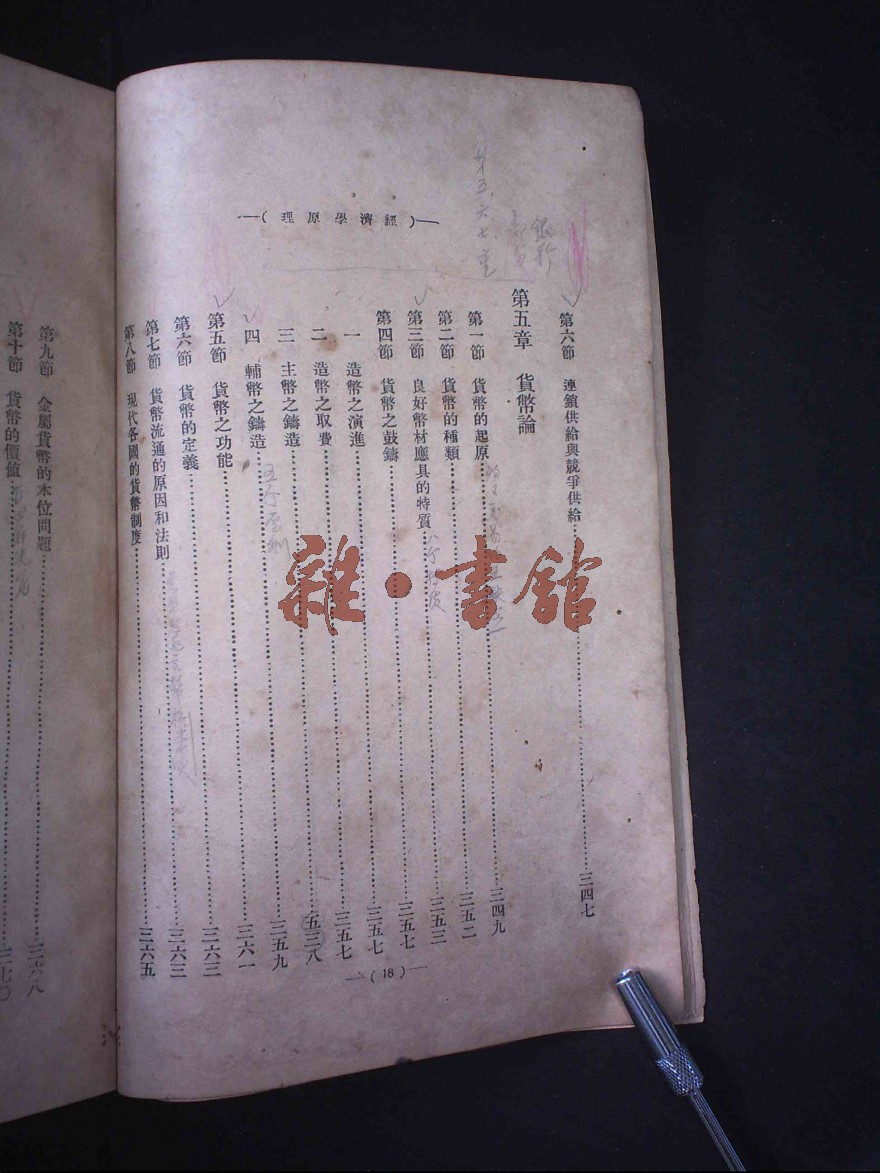 —（經濟學原理）—
第六節 連鎖供給與競爭供給……三四七
第五章 貨幣論
第一節 貨幣的起原……三四九
第二節 貨幣的種類……三五二
第三節 良好幣材應具的特質……三五三
第四節 貨幣之鼓鑄……三五七
一 造幣之演進……三五七
二 造幣之取費……三五七
三 主幣之鑄造……五三八
四 輔幣之鑄造……三五九
第五節 貨幣之功能……三六一
第六節 貨幣的定義……三六三
第七節 貨幣流通的原因和法則……三六三
第八節 現代各國的貨幣制度……三六五
—（18）—
第九節 金屬貨幣的本位問題……三六八
第十節 貨幣的價值……三七〇
第五、六、七章
雜·書館